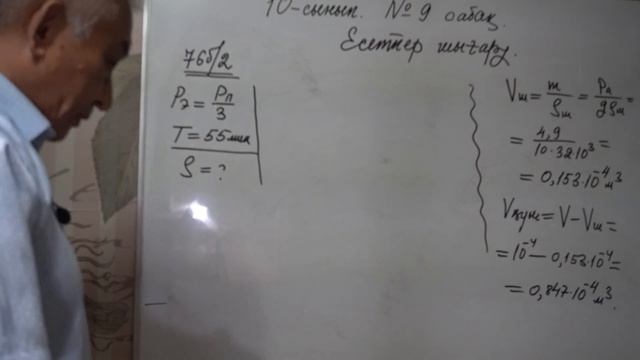 10-сынып. №9 сабақ.
Есептер шығару.
766/2
P₂ = Pл/3
T = 55 мин
ρ = ?
Vш = m/ρш = Pа/gρш =
= 4,9/10·32·10³ =
= 0,153·10⁻⁴ м³
Vқуыс = V – Vш =
= 10⁻⁴ – 0,153·10⁻⁴ =
= 0,847·10⁻⁴ м³.